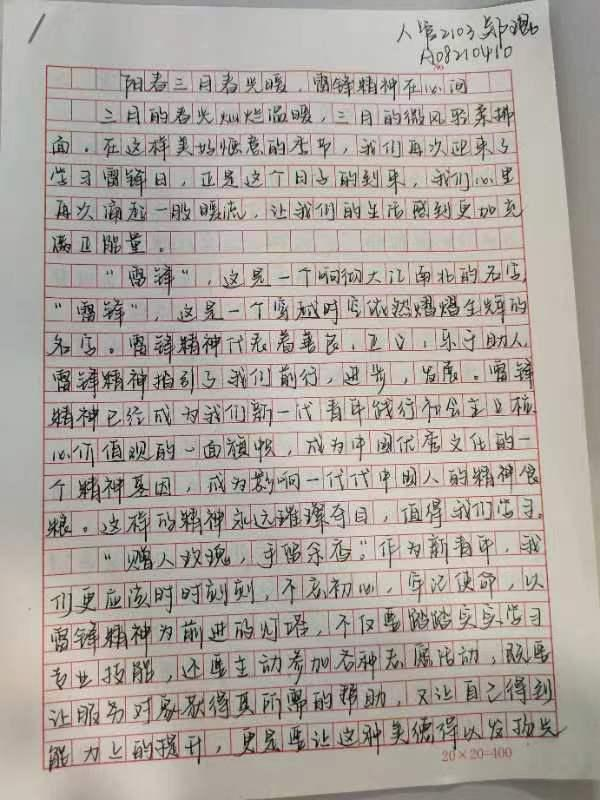 人管2103 郑
A08210410
阳春三月春光暖，雷锋精神在心间
三月的春光灿烂温暖，三月的微风轻柔拂
面。在这样美好惬意的季节，我们再次迎来了
学习雷锋日，正是这个日子的到来，我们心里
再次涌起一股暖流，让我们的生活感到更加充
满正能量。
“雷锋”，这是一个响彻大江南北的名字，
“雷锋”，这是一个穿越时空依然熠熠生辉的
名字。雷锋精神代表着善良，正义，乐于助人，
雷锋精神指引了我们前行，进步，发展。雷锋
精神已经成为我们新一代青年践行社会主义核
心价值观的一面旗帜，成为中国优秀文化的一
个精神基因，成为影响一代代中国人的精神食
粮。这样的精神永远璀璨夺目，值得我们学习。
“赠人玫瑰，手留余香。”作为新青年，我
们更应该时时刻刻，不忘初心，牢记使命，以
雷锋精神为前进的灯塔，不仅要踏踏实实学习
专业技能，还要主动参加各种志愿活动，既要
让服务对象获得其所需的帮助，又让自己得到
能力上的提升，更是要让这种美德得以发扬光
20×20=400